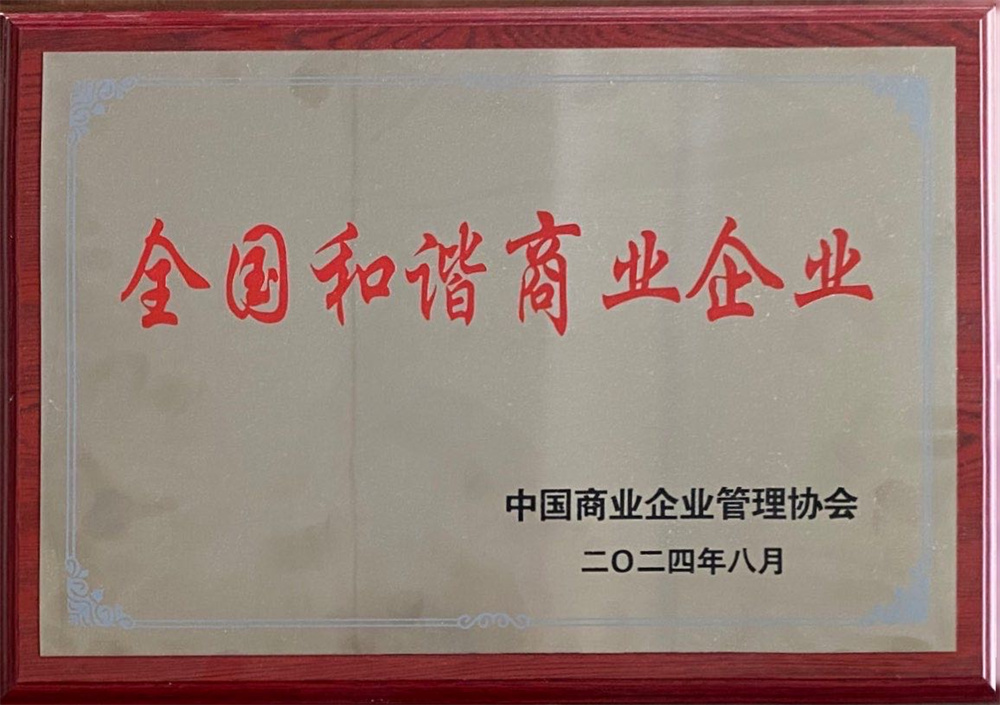 全国和谐商业企业
中国商业企业管理协会
二〇二四年八月